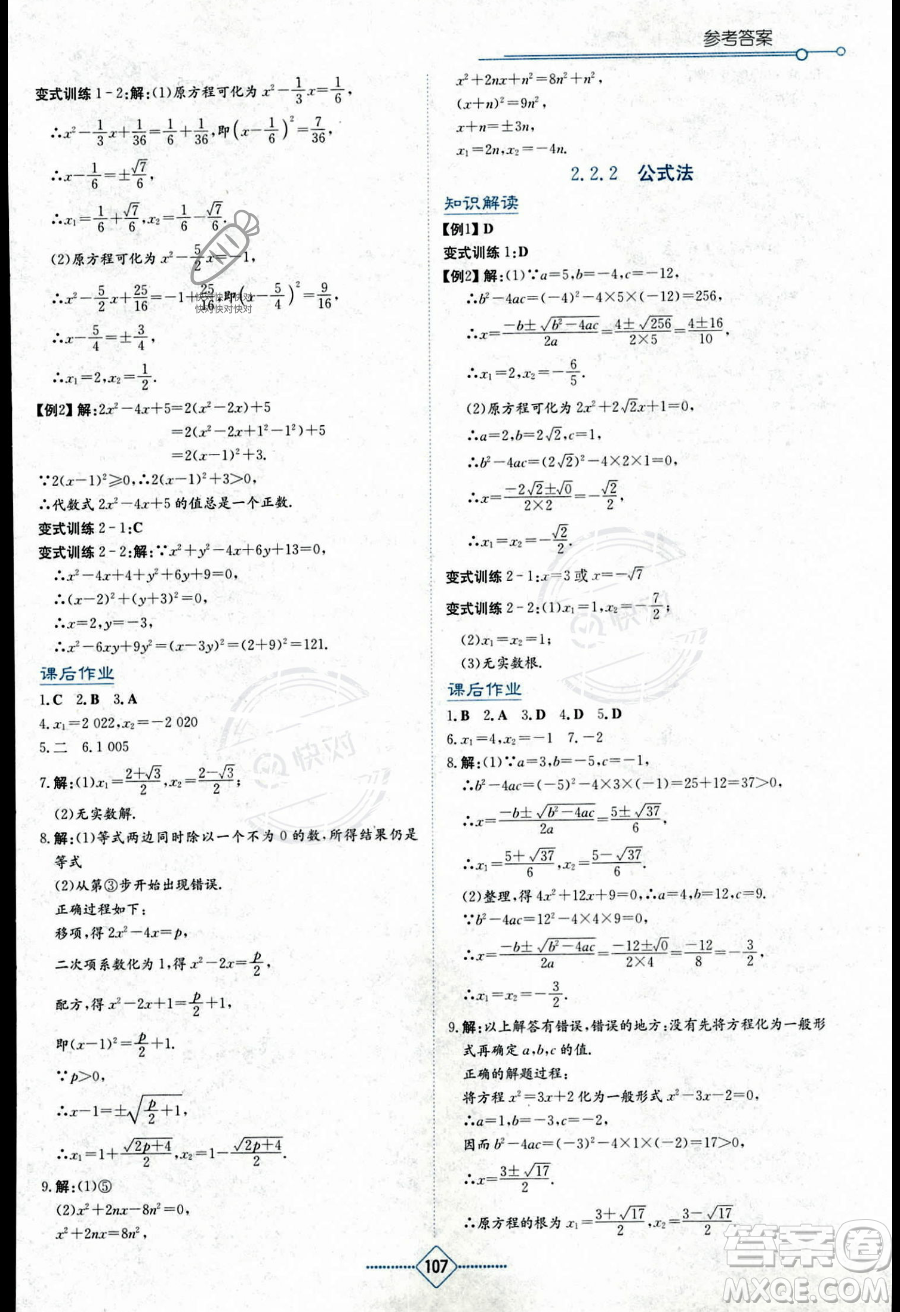 参考答案
变式训练1-2:解:(1)原方程可化为x²-1/3x=1/6,
∴x²-1/3x+1/36=1/6+1/36,即(x-1/6)²=7/36,
∴x-1/6=±√7/6,
∴x₁=1/6+√7/6,x₂=1/6-√7/6.
(2)原方程可化为x²-5/2x=-1,
∴x²-5/2x+25/16=-1+25/16,即(x-5/4)²=9/16,
∴x-5/4=±3/4,
∴x₁=2,x₂=1/2.
【例2】解:2x²-4x+5=2(x²-2x)+5
=2(x²-2x+1²-1²)+5
=2(x-1)²+3.
∵2(x-1)²≥0,∴2(x-1)²+3>0,
∴代数式2x²-4x+5的值总是一个正数.
变式训练2-1:C
变式训练2-2:解:∵x²+y²-4x+6y+13=0,
∴x²-4x+4+y²+6y+9=0,
∴(x-2)²+(y+3)²=0,
∴x=2,y=-3,
∴x²-6xy+9y²=(x-3y)²=(2+9)²=121.
课后作业
1.C 2.B 3.A
4.x₁=2 022,x₂=-2 020
5.二 6.1 005
7.解:(1)x₁=(2+√3)/2,x₂=(2-√3)/2;
(2)无实数解.
8.解:(1)等式两边同时除以一个不为0的数,所得结果仍是
等式
(2)从第③步开始出现错误.
正确过程如下:
移项,得2x²-4x=p,
二次项系数化为1,得x²-2x=p/2,
配方,得x²-2x+1=p/2+1,
即(x-1)²=p/2+1.
∵p>0,
∴x-1=±√(p/2+1),
∴x₁=1+√(2p+4)/2,x₂=1-√(2p+4)/2.
9.解:(1)⑤
(2)x²+2nx-8n²=0,
x²+2nx=8n²,
x²+2nx+n²=8n²+n²,
(x+n)²=9n²,
x+n=±3n,
x₁=2n,x₂=-4n.
2.2.2 公式法
知识解读
【例1】D
变式训练1:D
【例2】解:(1)∵a=5,b=-4,c=-12,
∴b²-4ac=(-4)²-4×5×(-12)=256,
∴x=(-b±√(b²-4ac))/2a=(4±√256)/(2×5)=(4±16)/10,
∴x₁=2,x₂=-6/5.
(2)原方程可化为2x²+2√2x+1=0,
∴a=2,b=2√2,c=1,
∴b²-4ac=(2√2)²-4×2×1=0,
∴x=(-2√2±√0)/(2×2)=-√2/2,
∴x₁=x₂=-√2/2.
变式训练2-1:x=3或x=-√7
变式训练2-2:(1)x₁=1,x₂=-7/2;
(2)x₁=x₂=1;
(3)无实数根.
课后作业
1.B 2.A 3.D 4.D 5.D
6.x₁=4,x₂=-1 7.-2
8.解:(1)∵a=3,b=-5,c=-1,
∴b²-4ac=(-5)²-4×3×(-1)=25+12=37>0,
∴x=(-b±√(b²-4ac))/2a=(5±√37)/6,
∴x₁=(5+√37)/6,x₂=(5-√37)/6.
(2)整理,得4x²+12x+9=0,∴a=4,b=12,c=9.
∵b²-4ac=12²-4×4×9=0,
∴x=(-b±√(b²-4ac))/2a=(-12±√0)/(2×4)=-12/8=-3/2,
∴x₁=x₂=-3/2.
9.解:以上解答有错误,错误的地方:没有先将方程化为一般形
式再确定a,b,c的值.
正确的解题过程:
将方程x²=3x+2化为一般形式,得x²-3x-2=0,
∴a=1,b=-3,c=-2,
因而b²-4ac=(-3)²-4×1×(-2)=17>0,
∴x=(3±√17)/2.
∴原方程的根为x₁=(3+√17)/2,x₂=(3-√17)/2.
107
快对快对快对
快对快对快对
快对
快对
答案圈
MXQE.COM